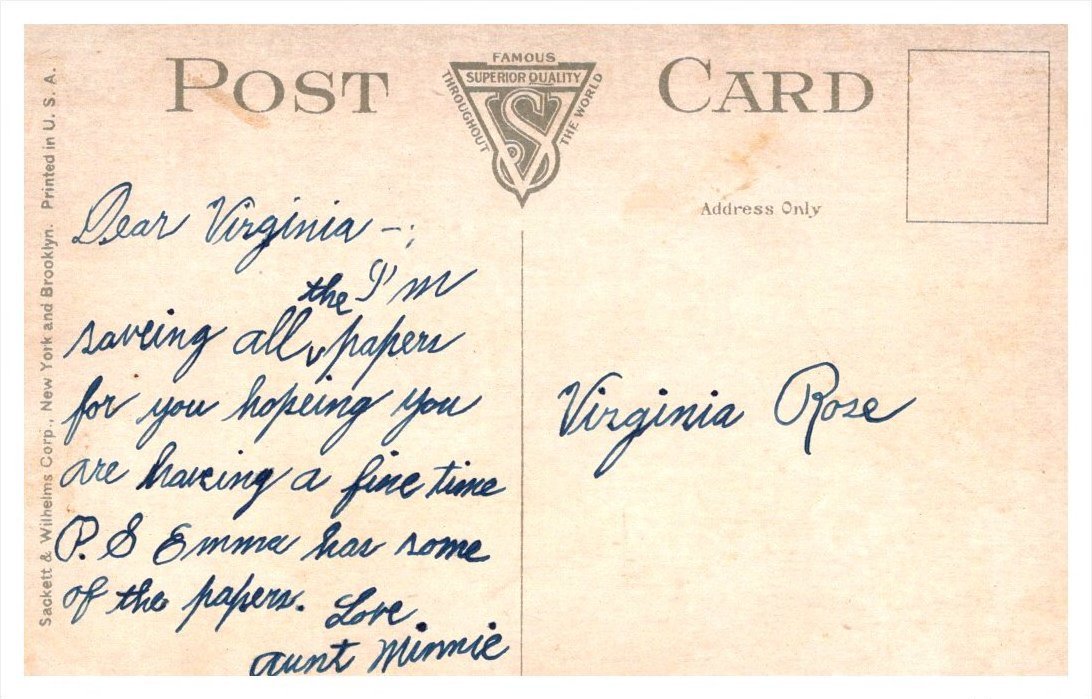 POST CARD
FAMOUS
SUPERIOR QUALITY
THROUGHOUT
THE WORLD
VS
Address Only
Sackett & Wilhelms Corp., New York and Brooklyn. Printed in U. S. A.
Dear Virginia -:
the I'm
saveing all papers
for you hopeing you
are haveing a fine time
P. S Emma has some
of the papers. Love
aunt Minnie
Virginia Rose